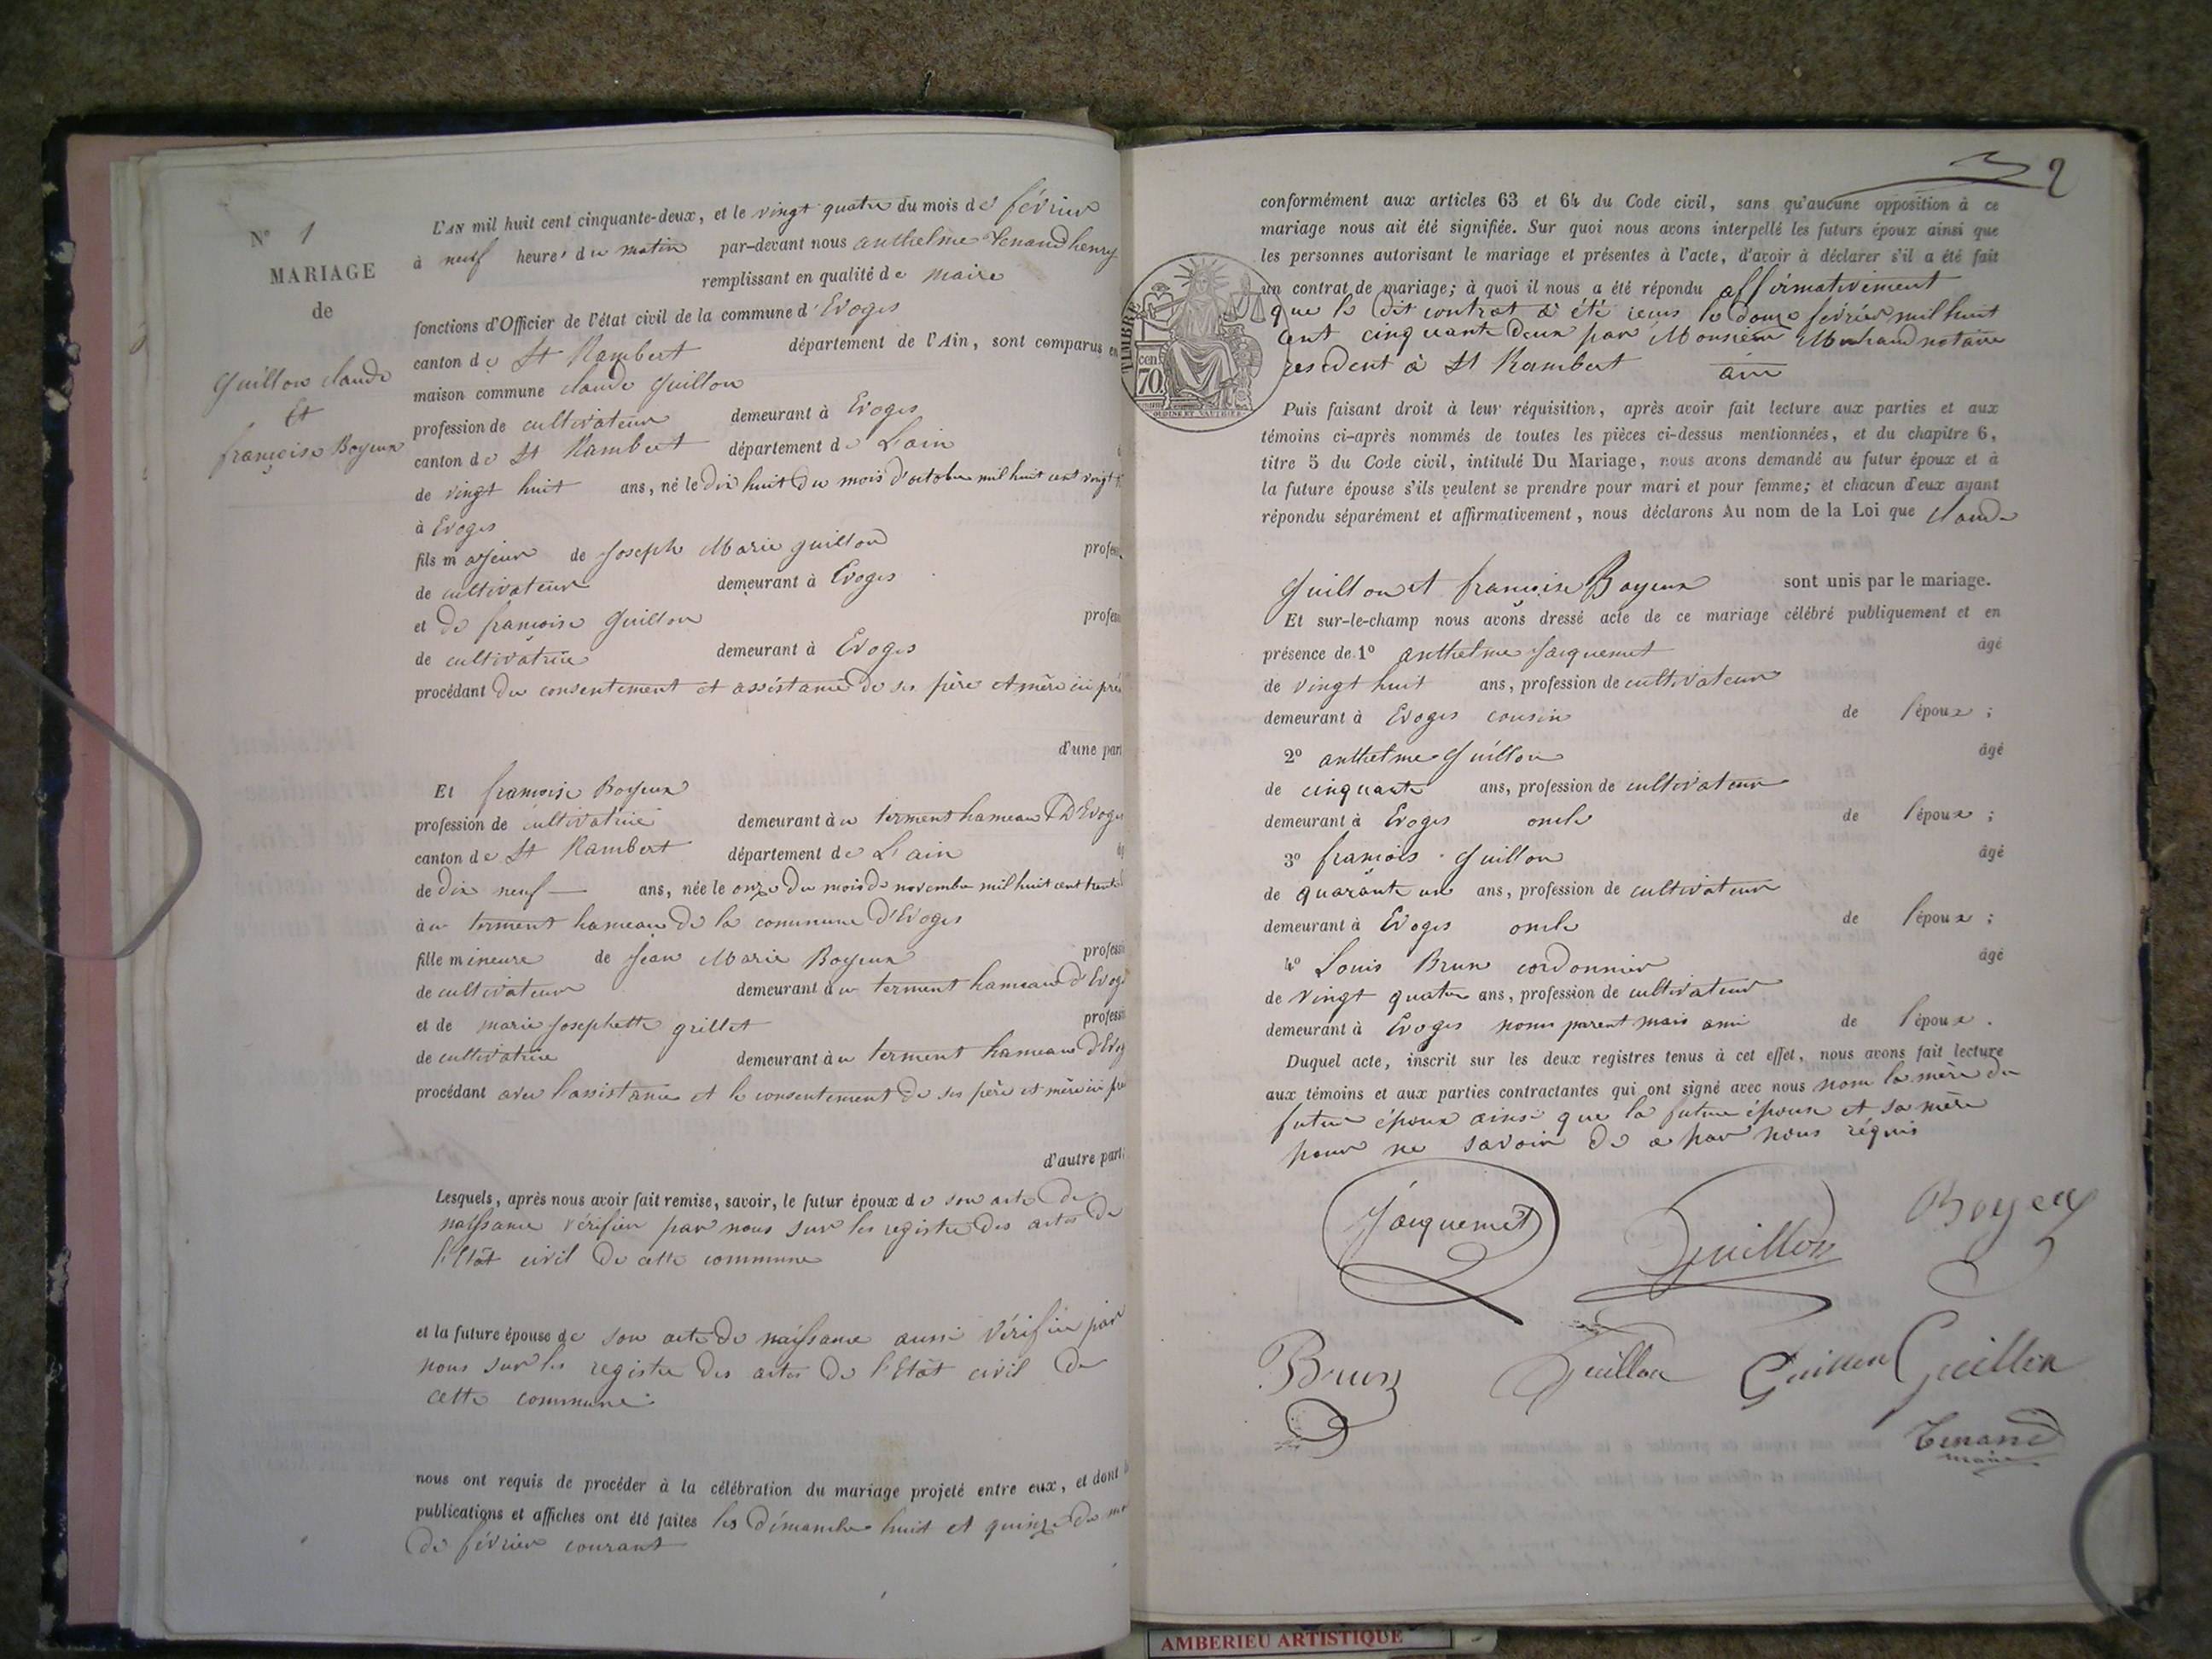 N° 1
MARIAGE
de
Guillon claude
Et
françoise Boyeux
L'AN mil huit cent cinquante-deux, et le vingt quatre du mois de février
à neuf heures du matin par-devant nous anthelme Tenand henry
remplissant en qualité de maire
fonctions d'Officier de l'état civil de la commune d'Evoges
canton de St Rambert département de l'Ain, sont comparus en
maison commune claude Guillon
profession de cultivateur demeurant à Evoges
canton de St Rambert département de L'ain
de vingt huit ans, né le dix huit du mois d'octobre mil huit cent vingt
à Evoges
fils majeur de Joseph Marie guillon profes
de cultivateur demeurant à Evoges
et de françoise Guillon profes
de cultivatrice demeurant à Evoges
procédant du consentement et assistance de ses père et mère ici pré
d'une part
Et françoise Boyeux
profession de cultivatrice demeurant à u terment hameau D'Evoges
canton de St Rambert département de L'ain
de dix neuf ans, née le onze du mois de novembre mil huit cent trente
à u terment hameau de la commune d'Evoges
fille mineure de Jean Marie Boyeux professi
de cultivateur demeurant à u terment hameau d'Evoge
et de marie Josephette grillet professi
de cultivatrice demeurant à u terment hameau d'Evog
procédant avec l'assistance et le consentement de ses père et mère ici pré
d'autre part;
Lesquels, après nous avoir fait remise, savoir, le futur époux de son acte de
naissance vérifier par nous sur les registre des actes de
l'Etat civil de cette commune
et la future épouse de son acte de naissance aussi vérifier par
nous sur les registre des actes de l'Etat civil de
cette commune
nous ont requis de procéder à la célébration du mariage projeté entre eux, et dont
publications et affiches ont été faites les dimanche huit et quinze du
de février courant
2
conformément aux articles 63 et 64 du Code civil, sans qu'aucune opposition à ce
mariage nous ait été signifiée. Sur quoi nous avons interpellé les futurs époux ainsi que
les personnes autorisant le mariage et présentes à l'acte, d'avoir à déclarer s'il a été fait
un contrat de mariage; à quoi il nous a été répondu affirmativement
que le dit contrat a été reçus le douze février mil huit
cent cinquante deux par Monsieur notaire
resident à St Rambert ain
TIMBRE
cen
70
Puis faisant droit à leur réquisition, après avoir fait lecture aux parties et aux
témoins ci-après nommés de toutes les pièces ci-dessus mentionnées, et du chapitre 6,
titre 5 du Code civil, intitulé Du Mariage, nous avons demandé au futur époux et à
la future épouse s'ils veulent se prendre pour mari et pour femme; et chacun d'eux ayant
répondu séparément et affirmativement, nous déclarons Au nom de la Loi que claude
Guillon et françoise Boyeux sont unis par le mariage.
Et sur-le-champ nous avons dressé acte de ce mariage célébré publiquement et en
présence de 1° anthelme Jacquemet âgé
de vingt huit ans, profession de cultivateur
demeurant à Evoges cousin de l'époux;
2° anthelme Guillon âgé
de cinquante ans, profession de cultivateur
demeurant à Evoges oncle de l'époux;
3° francois Guillon âgé
de quarante un ans, profession de cultivateur
demeurant à Evoges oncle de l'époux;
4° Louis Brun cordonnier âgé
de vingt quatre ans, profession de cultivateur
demeurant à Evoges nomn parent mais ami de l'époux.
Duquel acte, inscrit sur les deux registres tenus à cet effet, nous avons fait lecture
aux témoins et aux parties contractantes qui ont signé avec nous nom la mère du
futur époux ainsi que la future épouse et sa mère
pour ne savoir de a par nous réquis
Jacquemet Guillon Boyeux
Brun Guillon Guillon Guillon
Tenand
maire
AMBERIEU ARTISTIQUE